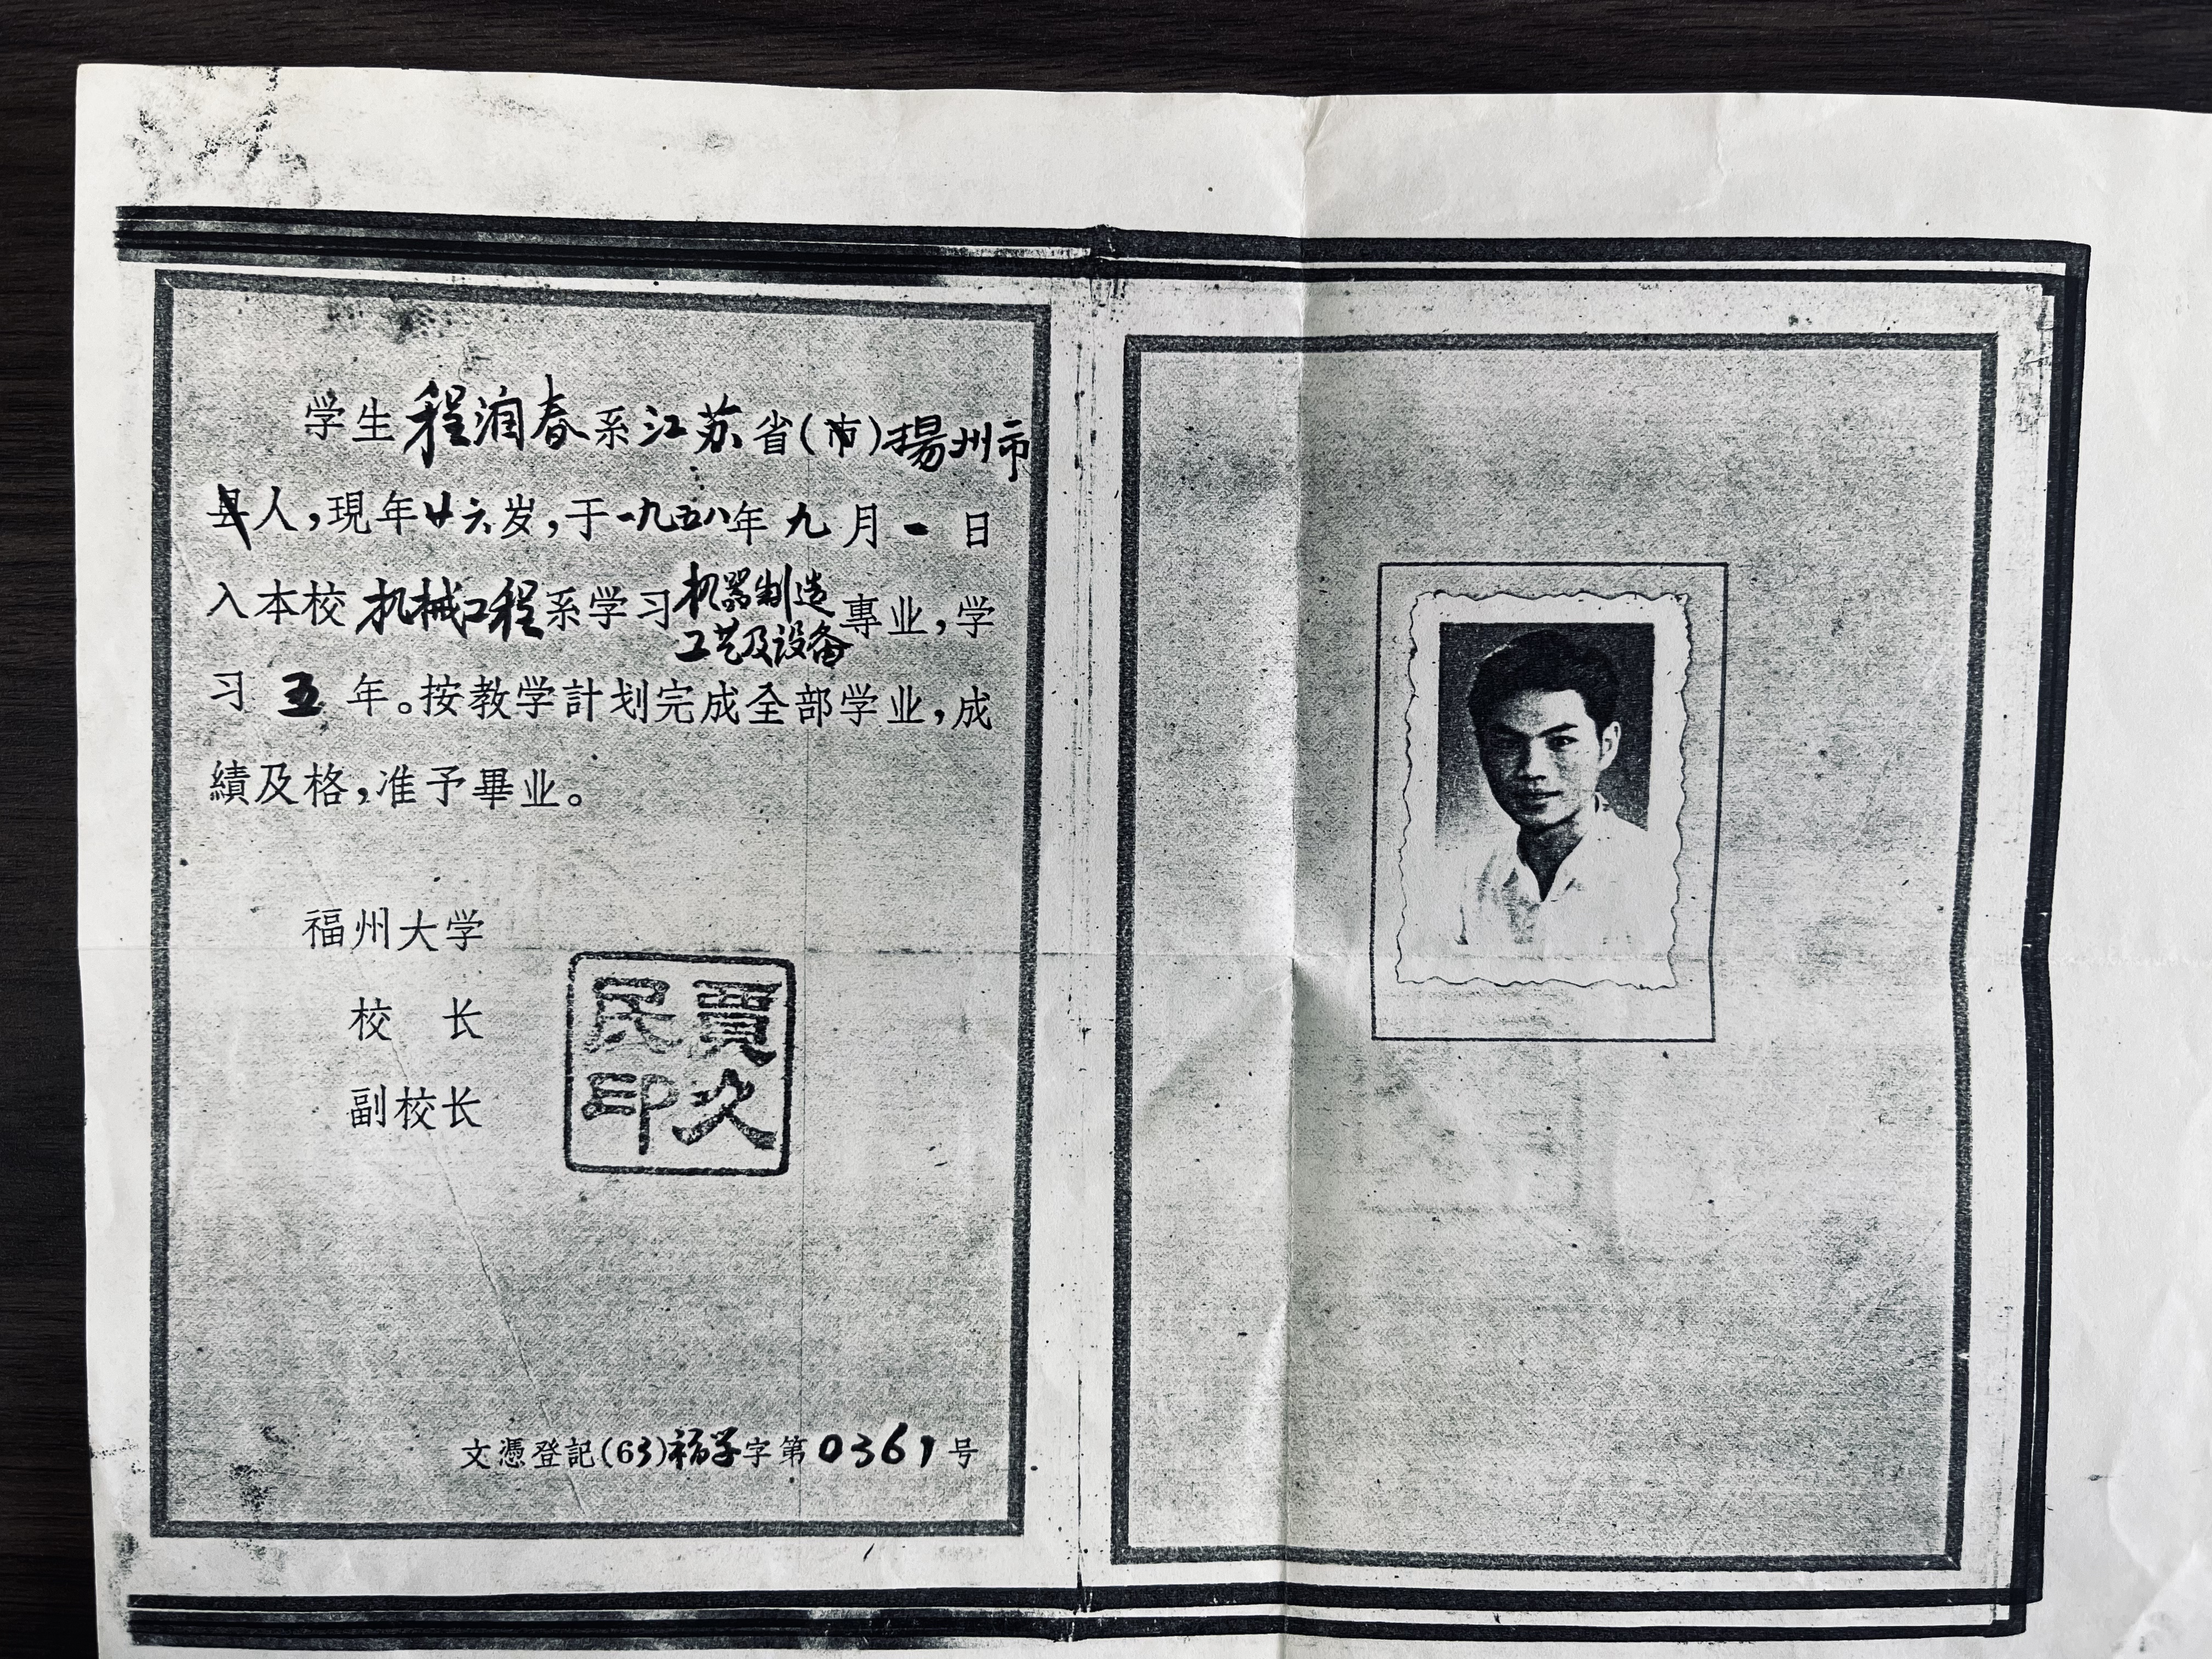 学生程润春系江苏省(市)揚州市
县人，現年廿六岁，于一九五八年九月一日
入本校机械工程系学习机器制造工艺及设备專业，学
习五年。按教学計划完成全部学业，成
績及格，准予畢业。
福州大学
校长
副校长
賈久民印
文憑登記(63)福学字第0361号